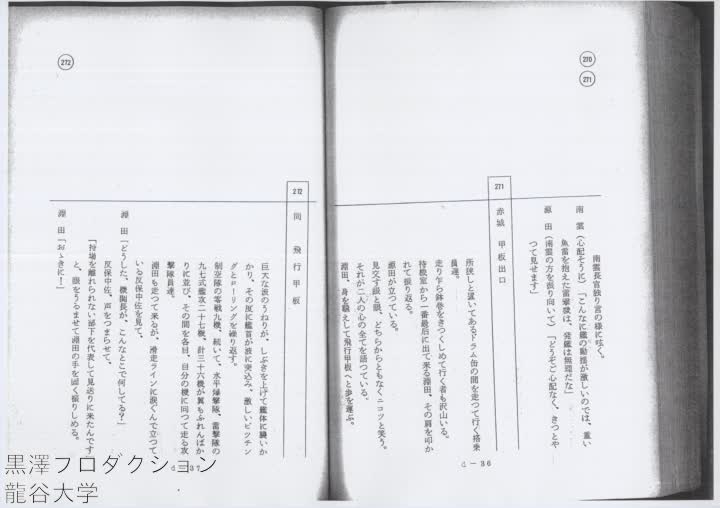 270
271
南雲長官独り言の様に呟く。
南雲(心配そうに)「こんなに艦の動揺が激しいのでは、重い
魚雷を抱えた雷撃機は、発艦は無理だな」
源田(南雲の方を振り向いて)「どうぞご心配なく、きつとや
つて見せます」
271
赤城 甲板出口
所狭しと置いてあるドラム缶の間を走つて行く搭乗
員達。
走り乍ら鉢巻をきつくしめて行く者も沢山いる。
待機室から一番最後に出て来る淵田、その肩を叩か
れて振り返る。
源田が立つている。
見交す眼と眼、どちらからともなくニコツと笑う。
それが二人の心の全てを語つている。
淵田、身を飜えして飛行甲板へと歩を運ぶ。
d-36
272
272
同 飛行甲板
巨大な波のうねりが、しぶきを上げて艦体に襲いか
かり、その度に艦首が波に突込み、激しいピツチン
グとローリングを繰り返す。
制空隊の零戦九機、続いて、水平爆撃隊、雷撃隊の
九七式艦攻二十七機、計三十六機が翼もふれんばか
りに並び、その間を各自、自分の機に向つて走る攻
撃隊員達。
淵田も走つて来るが、滑走ラインに淋ぐんで立つて
いる反保中佐を見て、
淵田「どうした、機関長が、こんなとこで何してる?」
反保中佐、声をつまらせて、
「持場を離れられない部下を代表して見送りに来たんです」
と、眼をうるませて淵田の手を固く握りしめる。
淵田「おゝきに!」
d-37
黒澤プロダクション
龍谷大学